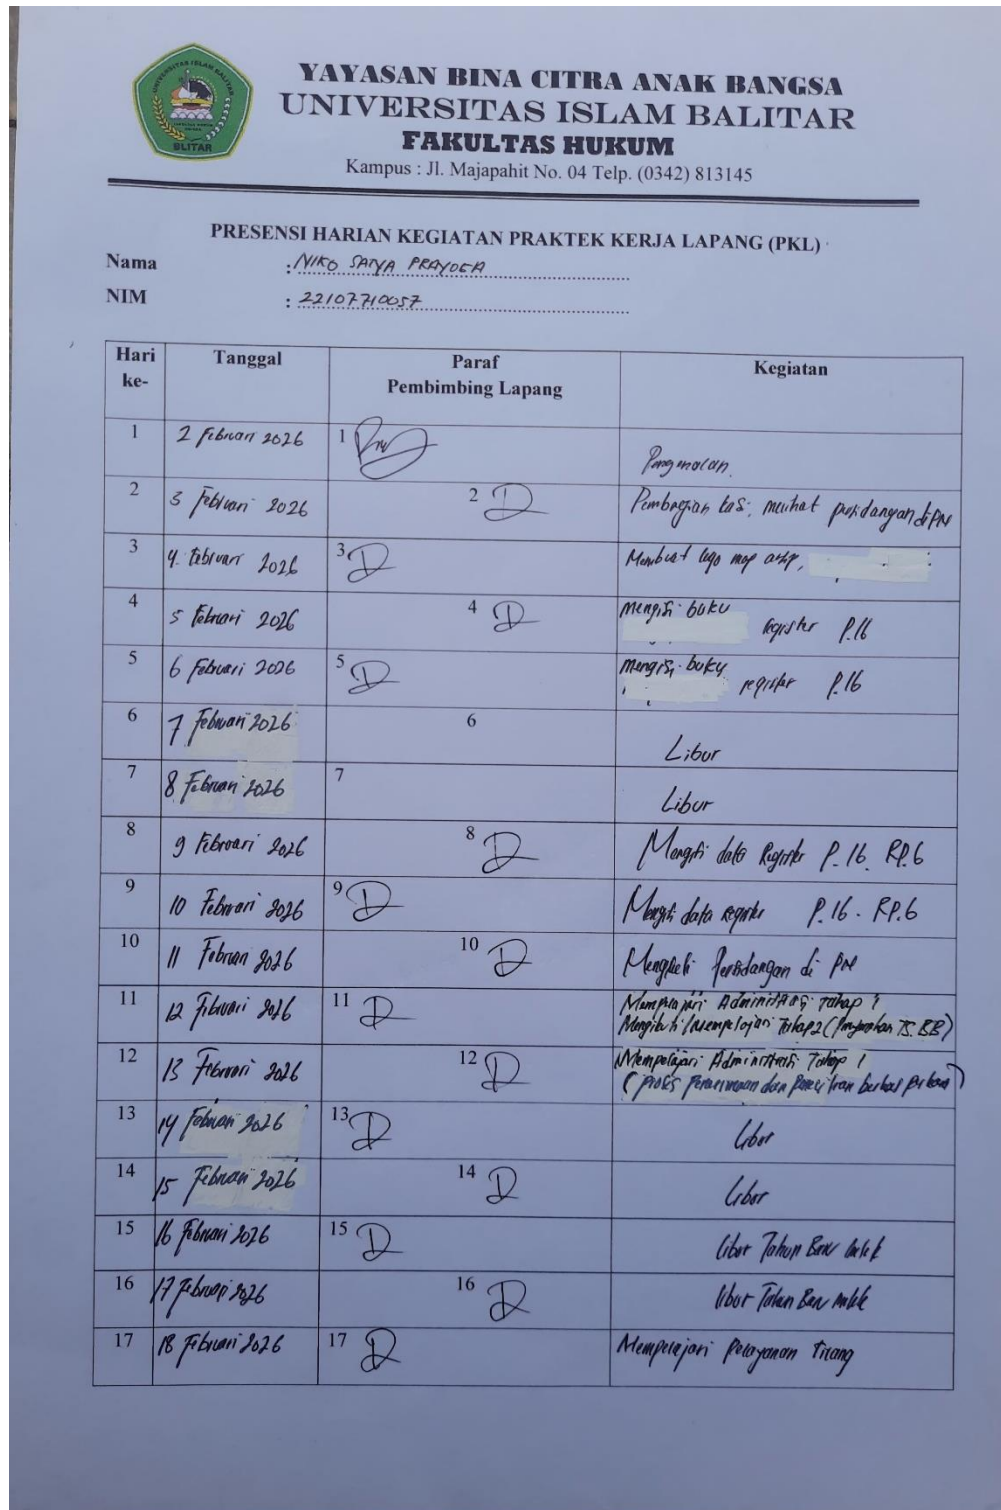 UNIVERSITAS ISLAM BALITAR
BLITAR
YAYASAN BINA CITRA ANAK BANGSA
UNIVERSITAS ISLAM BALITAR
FAKULTAS HUKUM
Kampus : Jl. Majapahit No. 04 Telp. (0342) 813145
PRESENSI HARIAN KEGIATAN PRAKTEK KERJA LAPANG (PKL)
Nama : NIKO SATYA PRAYOGA
NIM : 22107710057
Hari ke- Tanggal Paraf Pembimbing Lapang Kegiatan
1 2 Februari 2026 1 Pengenalan.
2 3 Februari 2026 2 Pembagian melihat persidangan di PN
3 4 Februari 2026 3 Membuat logo map arsip,
4 5 Februari 2026 4 Mengisi buku register P.16
5 6 Februari 2026 5 Mengisi buku register P.16
6 7 Februari 2026 6 Libur
7 8 Februari 2026 7 Libur
8 9 Februari 2026 8 Mengisi data Register P.16. RP.6
9 10 Februari 2026 9 Mengisi data register P.16 - RP.6
10 11 Februari 2026 10 Mengikuti Persidangan di PN
11 12 Februari 2026 11 Mempelajari Administrasi Tahap 1
Mengikuti/Mempelajari Tahap 2 ( TS. BB)
12 13 Februari 2026 12 Mempelajari Administrasi Tahap 1
(proses dan penelitian berkas perkara)
13 14 Februari 2026 13 Libur
14 15 Februari 2026 14 Libur
15 16 Februari 2026 15 Libur Tahun Baru Imlek
16 17 Februari 2026 16 Libur Tahun Baru Imlek
17 18 Februari 2026 17 Mempelajari Pelayanan Tilang